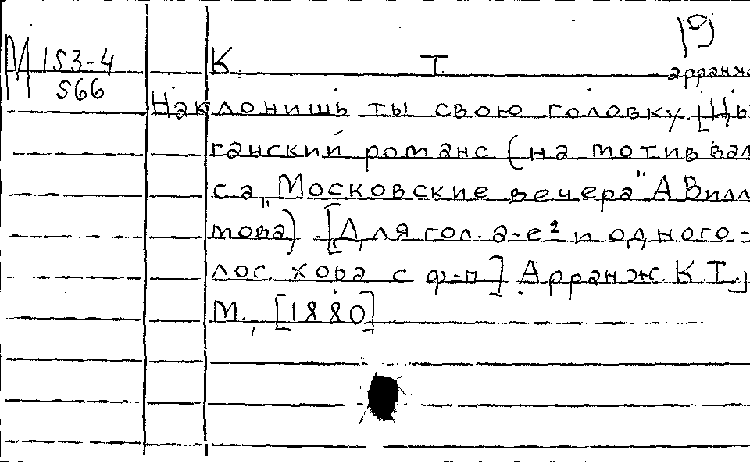 19
М 153-4 К. Т.
566 арранж
Наклонишь ты свою головку [Цы
ганский романс (на мотив вал
са "Московские вечера" А Вилл
мова) [Для гол. а-е² и одного-
лос. хора с ф-п] Арранж К Т.
М., [1880]